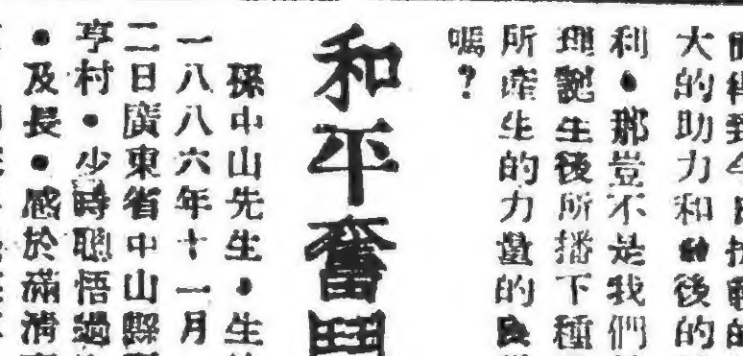 大的助力和後的
利。那豈不是我們
理說生後所播下種
所產生的力量的良
嗎？
和平奮鬥
孫中山先生。生
一八八六年十一月
二日廣東省中山縣
亨村。少時聰悟過
。及長。感於滿清